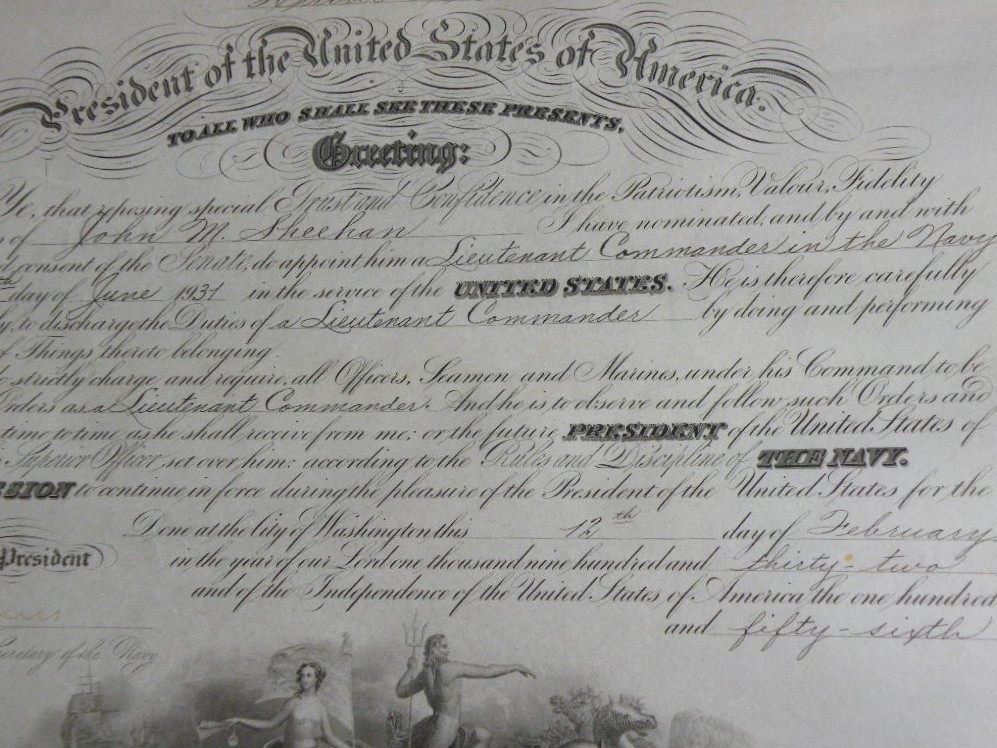 President of the United States of America.
TO ALL WHO SHALL SEE THESE PRESENTS,
Greeting:
Ye, that reposing special Trust and Confidence in the Patriotism, Valour, Fidelity
of John M. Sheehan I have nominated, and by and with
consent of the Senate, do appoint him a Lieutenant Commander in the Navy
day of June 1931 in the service of the UNITED STATES. He is therefore carefully
to discharge the Duties of a Lieutenant Commander by doing and performing
Things thereto belonging.
strictly charge, and require, all Officers, Seamen and Marines, under his Command to be
Orders as a Lieutenant Commander. And he is to observe and follow such Orders and
time to time as he shall receive from me, or the future PRESIDENT of the United States of
Superior Officer set over him: according to the Rules and Discipline of THE NAVY.
SION to continue in force during the pleasure of the President of the United States for the
Done at the City of Washington this 12th day of February
President in the year of our Lord one thousand nine hundred and thirty-two
and of the Independence of the United States of America the one hundred
and fifty-sixth
Secretary of the Navy